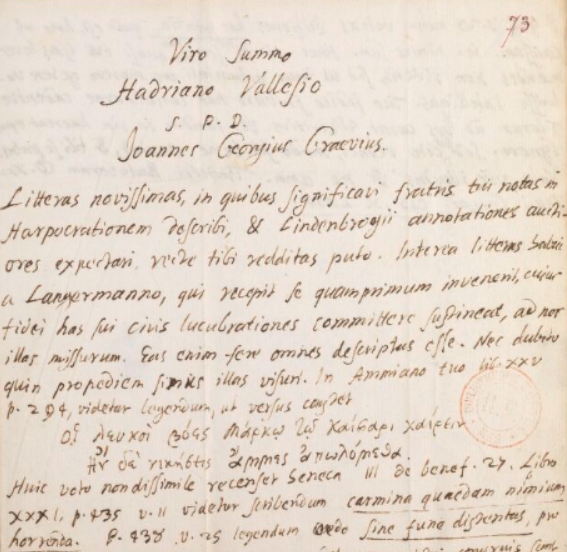 73
Viro Summo
Hadriano Vallesio
S. P. D.
Joannes Georgius Graevius.
Litteras novissimas, in quibus significavi fratris tui notas in
Harpocrationem describi, & Lindenbrogii annotationes aucti-
ores expectari, recte tibi redditas puto. Interea litteras habui
a Langermanno, qui recepit se quamprimum invenerit, cujus
fidei has sui civis lucubrationes committere sustineat, ad nos
illas missurum. Eas enim fere omnes descriptas esse. Nec dubito
quin propediem simus illas visuri. In Ammiano tuo lib. XXV
p. 294, videtur legendum, ut versus constet
Οἱ λευκοὶ βόες Μάρκῳ τῷ Καίσαρι χαίρειν
Ἂν δὲ νικήσῃς ἄμμες ἀπωλόμεθα.
Huic voto non dissimile recenset Seneca III de benef. 27. Libro
XXXI, p. 435 v. 11 videtur scribendum carmina quaedam nimium
horrenda. P. 438 v. 25 legendum sine funa distentas, pro